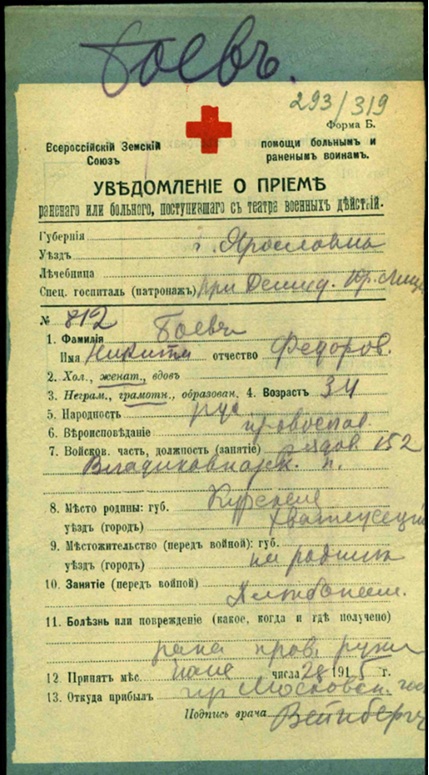 Боевъ.
293/319
Форма Б.
Всероссійскій Земскій Союзъ
помощи больнымъ и раненымъ воинамъ.
УВѢДОМЛЕНІЕ О ПРІЕМѢ
раненаго или больного, поступившаго съ театра военныхъ дѣйствій.
Губернія
Уѣздъ г. Ярославль
Лѣчебница
Спец. госпиталь (патронаж) при Демид. Юр. Лице
№ 812
1. Фамилія Боевъ
Имя Никита отчество Федоров.
2. Хол., женат., вдовъ
3. Неграм., грамотн., образован. 4. Возрастъ 34
5. Народность рус
6. Вѣроисповѣданіе православ.
7. Войсков. часть, должность (занятіе) рядов. 152
Владикавказск. п.
8. Мѣсто родины: губ. Курская
уѣздъ (городъ)
9. Мѣстожительство (передъ войной): губ.
уѣздъ (городъ) на родинѣ
10. Занятіе (передъ войной)
Хлѣбопаш.
11. Болѣзнь или поврежденіе (какое, когда и гдѣ получено)
рана прав. руки
12. Принятъ мѣс. числа 28 1915 г.
13. Откуда прибылъ Московск.
Подпись врача Вейнбергъ